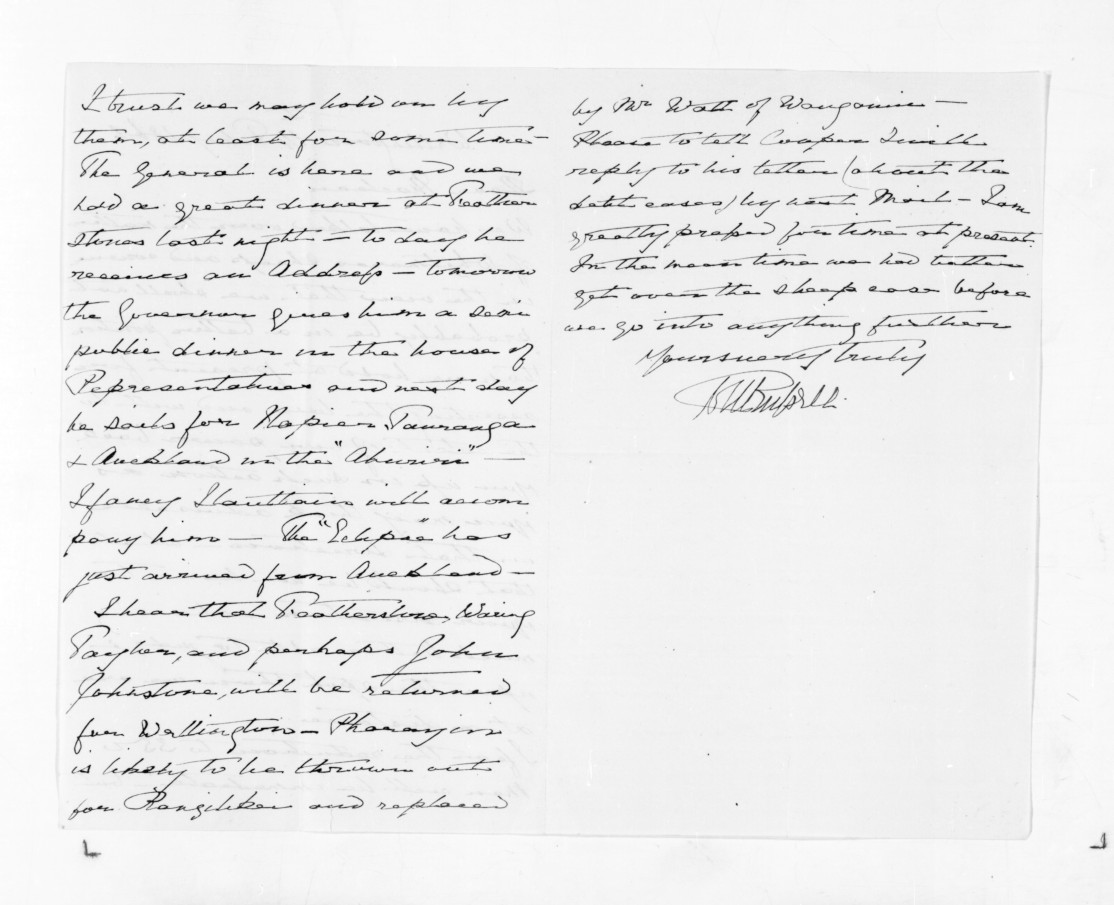 I trust we may hold on by
them, at least for some time –
The General is here and we
had a great dinner at Feather
stones last night – to day he
receives an Address – tomorrow
the Governor gives him a semi
public dinner in the house of
Representatives and next day
he sails for Napier Tauranga
& Auckland in the "Ahuriri" –
I fancy Haultain will accom
pany him – The "Eclipse" has
just arrived from Auckland –
I hear that Featherstone, Waring
Taylor, and perhaps John
Johnstone, will be returned
for Wellington – Pharazyn
is likely to be thrown out
for Rangitikei and replaced
by Mr Watt of Wanganui –
Please to tell Cooper I will
reply to his letter (about the
debt cases) by next Mail – I am
greatly pressed for time at present.
In the mean time we had better
get over the sheep case before
we go into anything further
Yours very truly
Russell